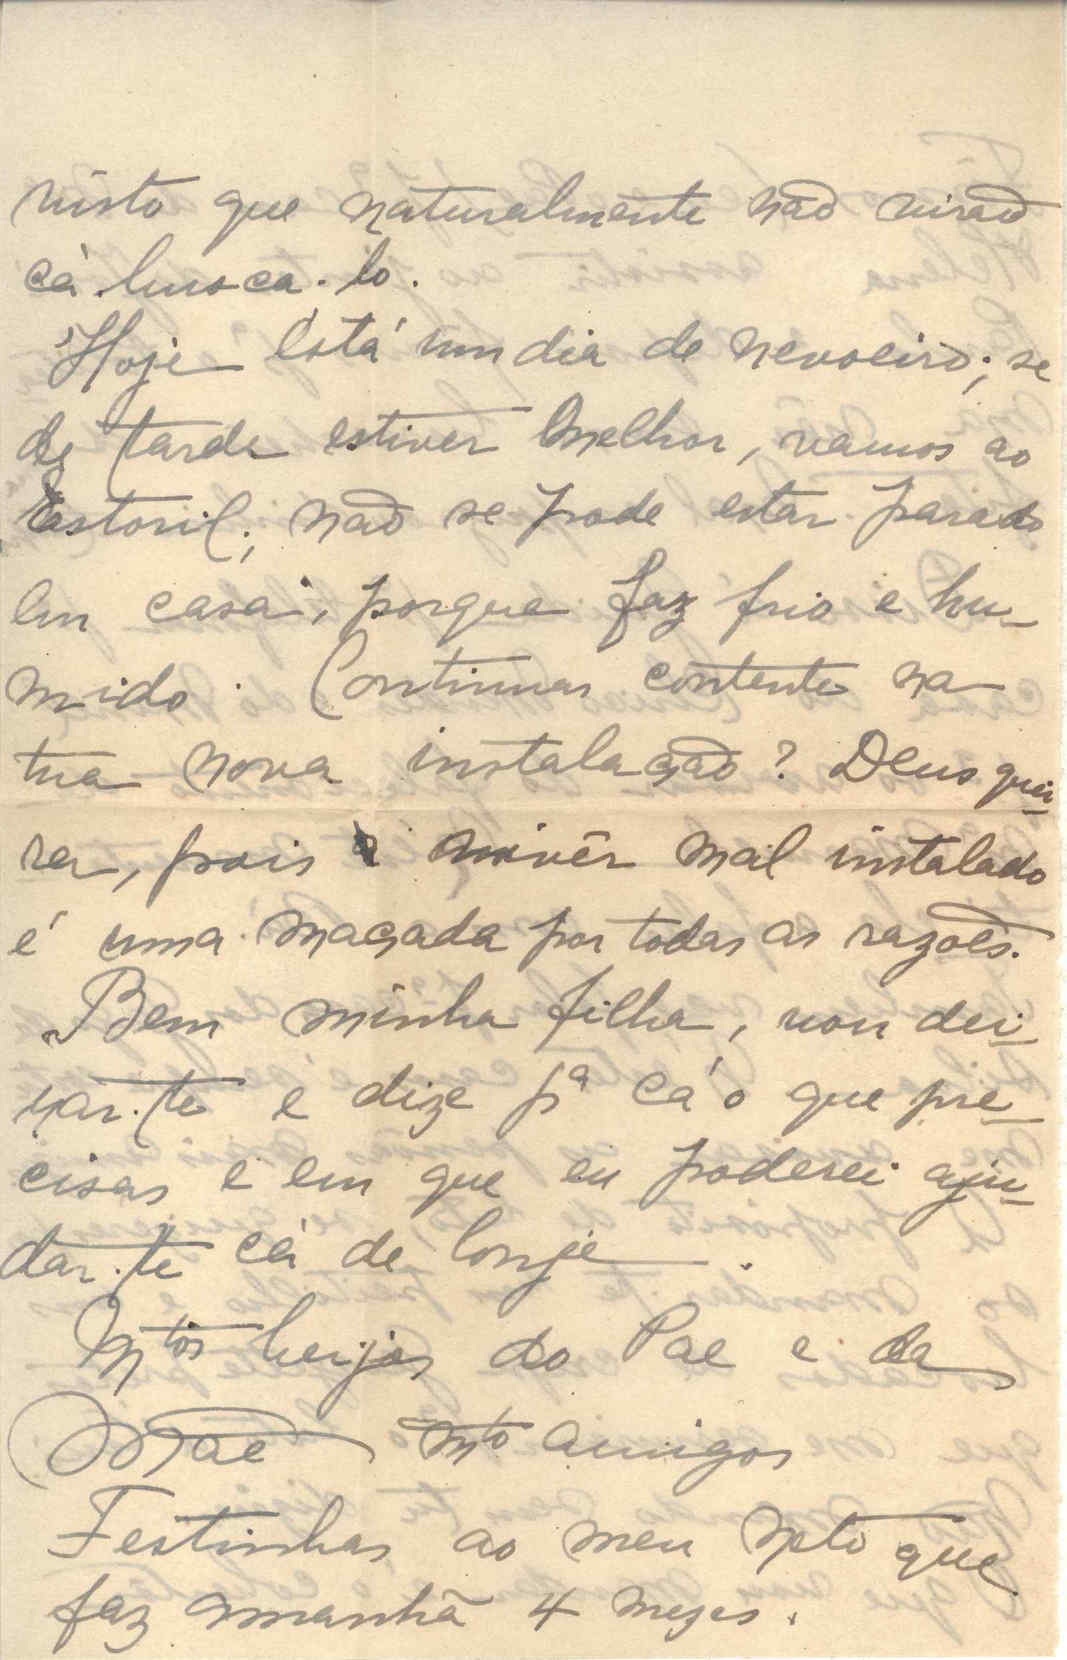 visto que naturalmente não virão
cá busca-lo.
Hoje está um dia de nevoeiro; se
de tarde estiver melhor, vamos ao
Estoril; não se pode estar parado
em casa, porque faz frio e hu-
mido. Continuas contente na
tua nova instalação? Deus quei-
ra, pois vivêr mal instalado
é uma maçada por todas as razões.
Bem minha filha, vou dei-
xar-te e dize pª cá o que pre-
cisas e em que eu poderei aju-
dar-te cá de longe.
Mtos beijos do Pae e da
Mãe mto amigos
Festinhas ao meu neto que
faz amanhã 4 mezes.